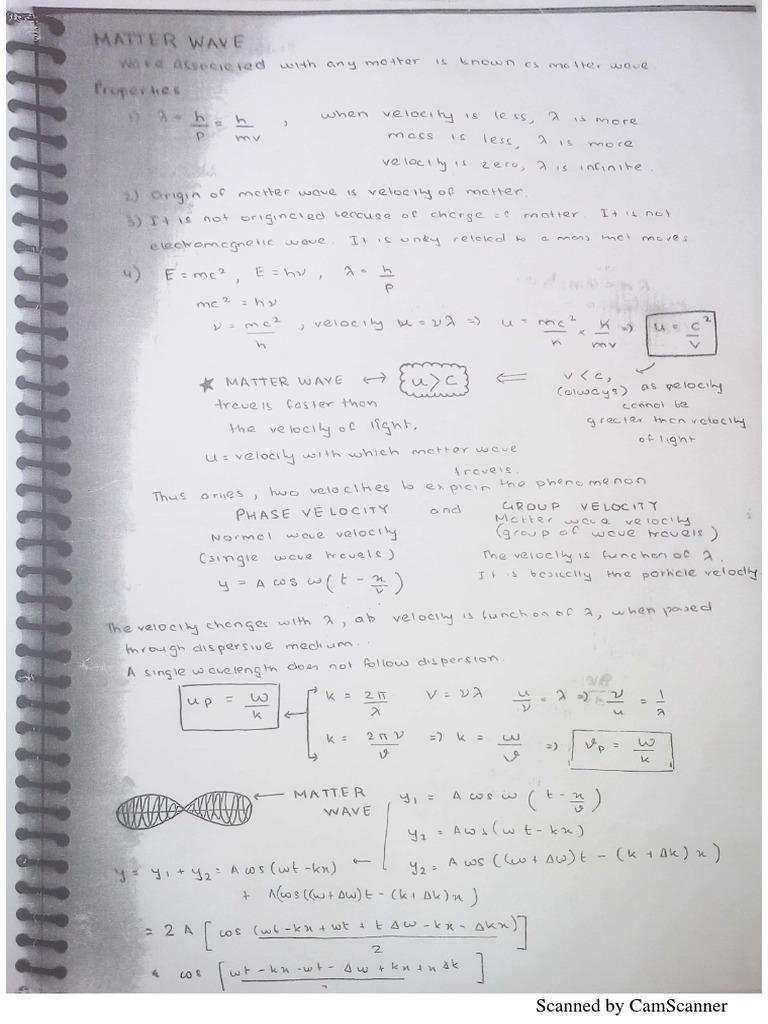 MATTER WAVE
Wave Associated with any matter is known as matter wave.
Properties
1) λ = h/p = h/mv , when velocity is less, λ is more
mass is less, λ is more
velocity is zero, λ is infinite.
2) Origin of matter wave is velocity of matter.
3) It is not originated because of charge of matter. It is not
electromagnetic wave. It is only related to a mass that moves
4) E = mc², E = hν, λ = h/p
mc² = hν
ν = mc²/h , velocity u = νλ => u = mc²/h × h/mv => u = c²/v
★ MATTER WAVE ↔ u>C ⇐ v < c,
travels faster than (always) as velocity
the velocity of light. cannot be
greater than velocity
of light
u = velocity with which matter wave
travels.
Thus arises, two velocities to explain the phenomenon
PHASE VELOCITY and GROUP VELOCITY
Normal wave velocity Matter wave velocity
(single wave travels) (group of wave travels)
y = A cos ω(t - x/v) The velocity is function of λ.
It is basically the particle velocity.
The velocity changes with λ, as velocity is function of λ, when passed
through dispersive medium.
A single wavelength does not follow dispersion.
up = ω/k ← k = 2π/λ V = νλ u/ν = λ => ν/u = 1/λ
k = 2πν/ϑ => k = ω/ϑ => ϑp = ω/k
← MATTER WAVE
y₁ = A cos ω (t - x/ϑ)
y₂ = A cos (ωt - kx)
y₂ = A cos ((ω + Δω)t - (k + Δk)x)
y = y₁ + y₂ = A cos (ωt - kx) ←
+ A(cos((ω+Δω)t - (k+Δk)x)
= 2A [cos (ωt - kx + ωt + tΔω - kx - Δkx)/2]
cos [ωt - kx - ωt - Δω + kx + xΔk
Scanned by CamScanner